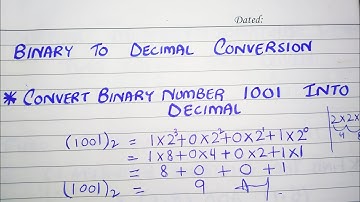 Dated:
BINARY TO DECIMAL CONVERSION
* CONVERT BINARY NUMBER 1001 INTO
DECIMAL
(1001)₂ = 1×2³+0×2²+0×2¹+1×2⁰
2×2×
= 1×8+0×4+0×2+1×1
4
= 8 + 0 + 0 + 1
(1001)₂ = 9